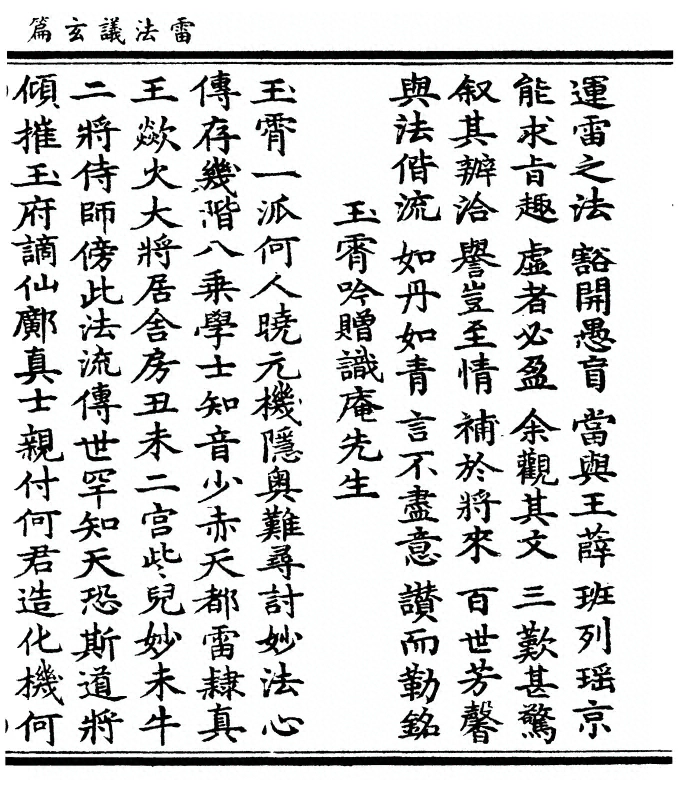 雷法議玄篇
運雷之法 豁開愚盲 當與王薛 班列瑶京
能求旨趣 虛者必盈 余觀其文 三歎甚驚
叙其辨洽 譽豈至情 補於將來 百世芳馨
與法偕流 如丹如青 言不盡意 讃而勒銘
玉霄吟贈識庵先生
玉霄一派何人曉元機隱奥難尋討妙法心
傳存幾階八乘學士知音少赤天都雷隸真
王歘火大將居舍房丑未二宮些兒妙未牛
二將侍師傍此法流傳世罕知天恐斯道將
傾摧玉府謫仙鄺真士親付何君造化機何